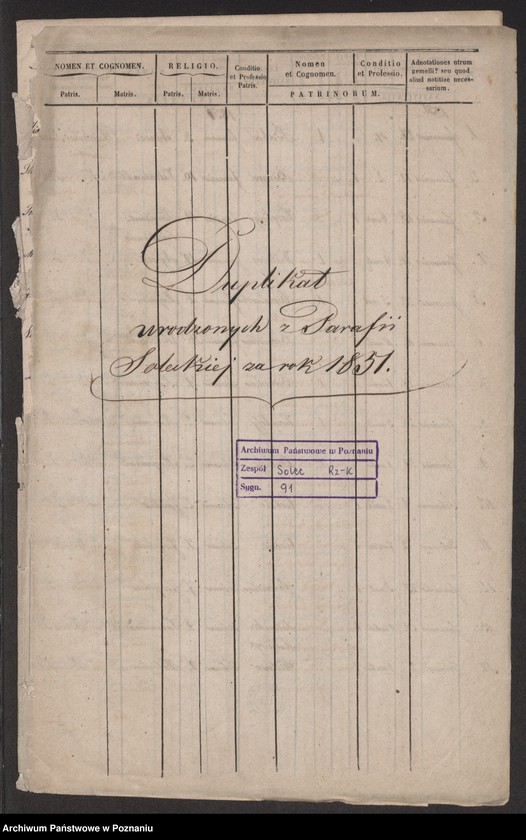 NOMEN ET COGNOMEN.
Patris. Matris.
RELIGIO.
Patris. Matris.
Conditio
et Professio
Patris.
Nomen
et Cognomen.
Conditio
et Professio.
PATRINORUM.
Adnotationes utrum
gemelli? seu quod
aliud notitiae neces-
sarium.
Duplikat
urodzonych z Parafii
Soleckiej za rok 1851.
Archiwum Państwowe w Poznaniu
Zespół Solec Rz-K
Sygn. 91
Archiwum Państwowe w Poznaniu